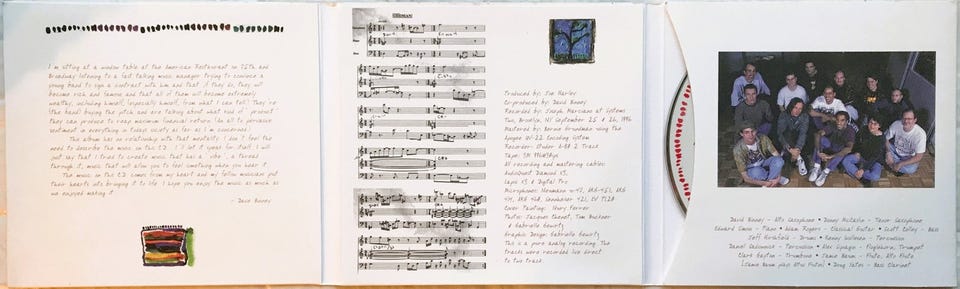 I am sitting at a window table at the American Restaurant on 75th and
Broadway listening to a fast talking music manager trying to convince a
young band to sign a contract with him and that if they do, they will
become rich and famous and that all of them will become extremely
wealthy, including himself, (especially himself, from what I can tell) They're
(the band) buying the pitch and are talking about what kind of product
they can produce to reap maximum financial return. (An all to pervasive
sentiment in everything in todays society as far as I am concerned)
This album has no relationship with that mentality. I don't feel the
need to describe the music on this CD. I'll let it speak for itself. I will
just say that I tried to create music that has a "vibe", a thread
through it, music that will allow you to feel something when you hear it.
The music on this CD comes from my heart and my fellow musicians put
their hearts into bringing it to life. I hope you enjoy the music as much as
we enjoyed making it.
- David Binney
Produced by: Joe Harley
Co-produced by: David Binney
Recorded by: Joseph Marciano at Systems
Two, Brooklyn, NY September 25 & 26, 1996
Mastered by: Bernie Grundman using the
Apogee UV-22 Encoding System
Recorder: Studer A-80 2 Track
Tape: 3M 996
All recording and mastering cables:
AudioQuest Diamond X3,
Lapis X3 & Digital Pro
Microphones: Neumann
Sennheiser 421, EV
Cover Painting:
Photos: Jacques Thevot, Tim Buckner
& Gabrielle Gewirtz
Graphic Design: Gabrielle Gewirtz
This is a pure analog recording. The
tracks were recorded live direct
to two track.
David Binney - Alto Saxophone • Donny McCaslin - Tenor Saxophone
Edward Simon - Piano • Adam Rogers - Classical Guitar • Scott Colley - Bass
Jeff Hirshfield - Drums • Kenny Wollesen - Percussion
Daniel Sadownick - Percussion • Alex Sipiagin - Flugelhorn, Trumpet
Clark Gayton - Trombone • Jamie Baum - Flute, Alto Flute
(Jamie Baum plays Altus Flute) • Doug Yates - Bass Clarinet